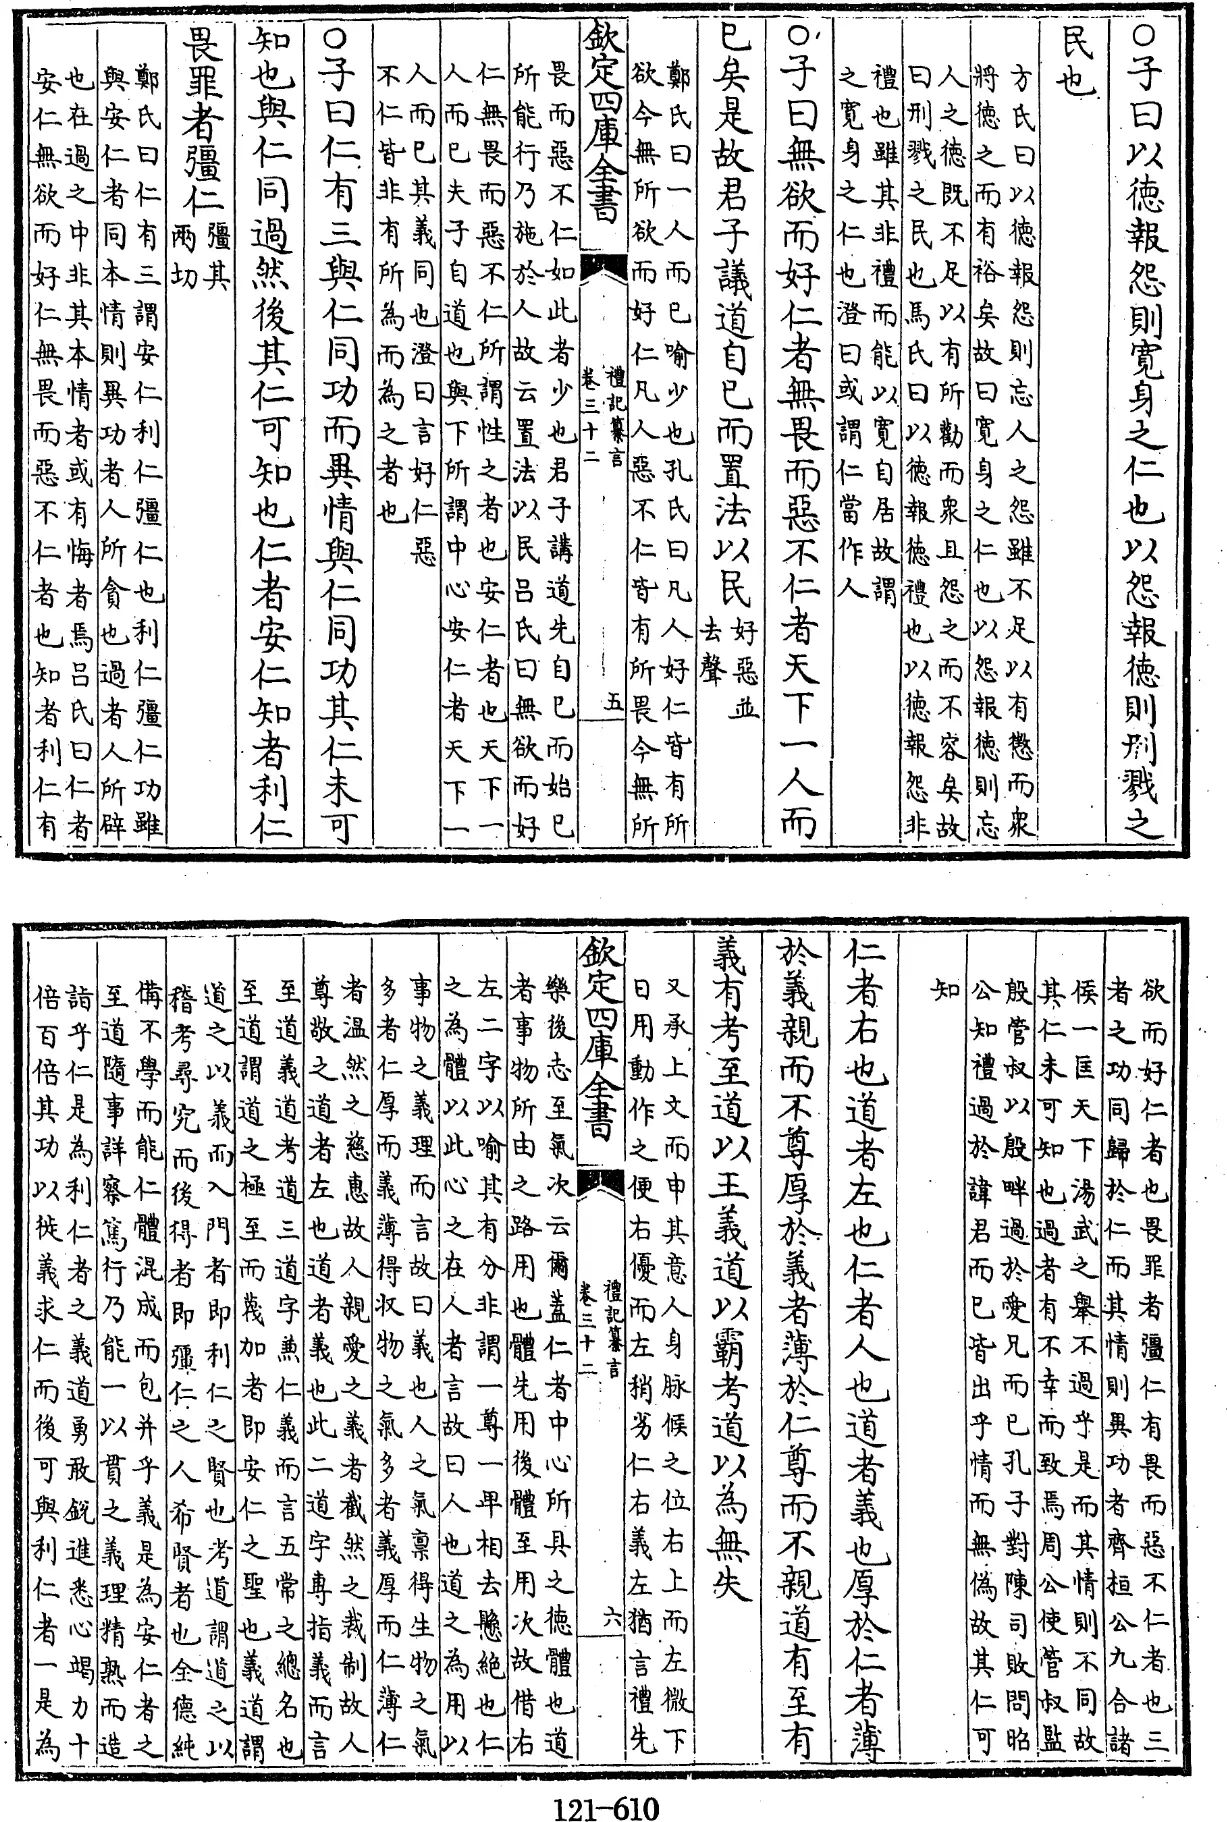 ○子曰以徳報怨則寛身之仁也以怨報徳則刑戮之
民也
方氏曰以徳報怨則忘人之怨雖不足以有懲而衆
將徳之而有裕矣故曰寛身之仁也以怨報徳則忘
人之徳既不足以有所勸而衆且怨之而不容矣故
曰刑戮之民也馬氏曰以徳報徳禮也以徳報怨非
禮也雖其非禮而能以寛自居故謂
之寛身之仁也澄曰或謂仁當作人
○子曰無欲而好仁者無畏而惡不仁者天下一人而
已矣是故君子議道自已而置法以民
好惡並
去聲
鄭氏曰一人而已喻少也孔氏曰凡人好仁皆有所
欲今無所欲而好仁凡人惡不仁皆有所畏今無所
欽定四庫全書
禮記纂言
卷三十二
五
畏而惡不仁如此者少也君子講道先自已而始已
所能行乃施於人故云置法以民吕氏曰無欲而好
仁無畏而惡不仁所謂性之者也安仁者也天下一
人而已夫子自道也與下所謂中心安仁者天下一
人而已其義同也澄曰言好仁惡
不仁皆非有所為而為之者也
○子曰仁有三與仁同功而異情與仁同功其仁未可
知也與仁同過然後其仁可知也仁者安仁知者利仁
畏罪者彊仁
彊其
兩切
鄭氏曰仁有三謂安仁利仁彊仁也利仁彊仁功雖
與安仁者同本情則異功者人所貪也過者人所辟
也在過之中非其本情者或有悔者焉吕氏曰仁者
安仁無欲而好仁無畏而惡不仁者也知者利仁有
欲而好仁者也畏罪者彊仁有畏而惡不仁者也三
者之功同歸於仁而其情則異功者齊桓公九合諸
侯一匡天下湯武之舉不過乎是而其情則不同故
其仁未可知也過者有不幸而致焉周公使管叔監
殷管叔以殷畔過於愛兄而已孔子對陳司敗問昭
公知禮過於諱君而已皆出乎情而無偽故其仁可
知
仁者右也道者左也仁者人也道者義也厚於仁者薄
於義親而不尊厚於義者薄於仁尊而不親道有至有
義有考至道以王義道以霸考道以為無失
又承上文而申其意人身脉候之位右上而左微下
日用動作之便右優而左稍劣仁右義左猶言禮先
欽定四庫全書
禮記纂言
卷三十二
六
樂後志至氣次云爾蓋仁者中心所具之徳體也道
者事物所由之路用也體先用後體至用次故借右
左二字以喻其有分非謂一尊一卑相去懸絶也仁
之為體以此心之在人者言故曰人也道之為用以
事物之義理而言故曰義也人之氣禀得生物之氣
多者仁厚而義薄得収物之氣多者義厚而仁薄仁
者温然之慈惠故人親愛之義者截然之裁制故人
尊敬之道者左也道者義也此二道字專指義而言
至道義道考道三道字兼仁義而言五常之總名也
至道謂道之極至而蔑加者即安仁之聖也義道謂
道之以義而入門者即利仁之賢也考道謂道之以
稽考尋究而後得者即彊仁之人希賢者也全徳純
備不學而能仁體混成而包并乎義是為安仁者之
至道隨事詳察篤行乃能一以貫之義理精熟而造
詣乎仁是為利仁者之義道勇敢銳進悉心竭力十
倍百倍其功以徙義求仁而後可與利仁者一是為
121-610